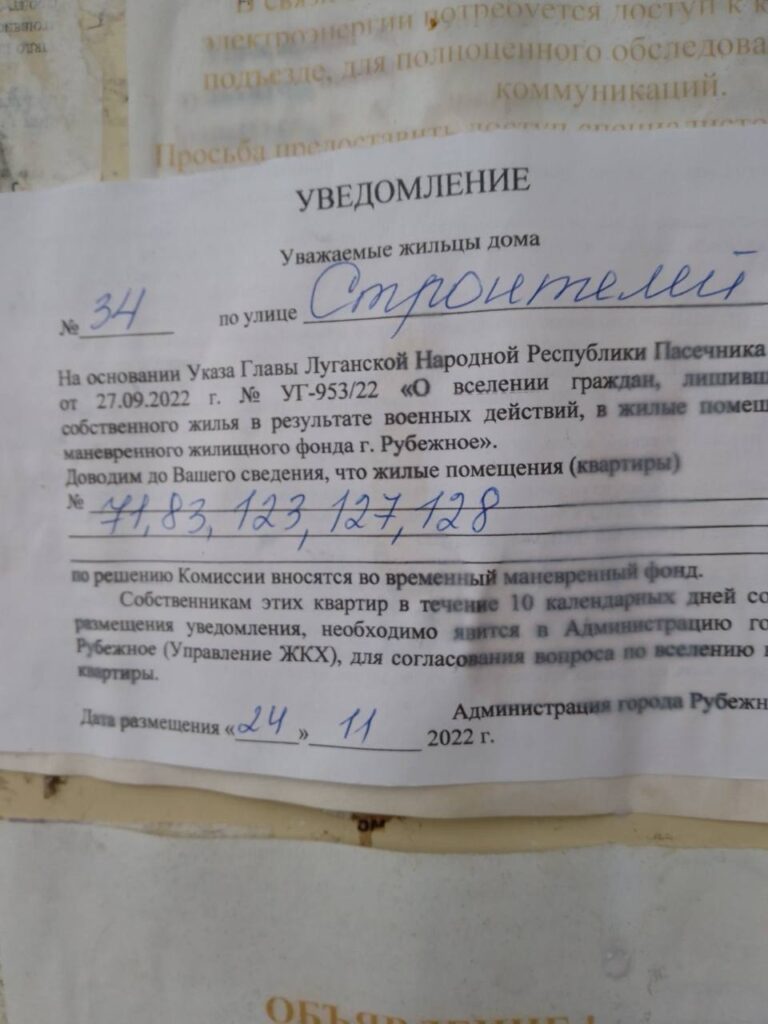 В связи
электроэнергии потребуется доступ к
подъезде, для полноценного обследова
коммуникаций.
Просьба предоставить доступ специалисто
УВЕДОМЛЕНИЕ
Уважаемые жильцы дома
№ 34 по улице Строителей
На основании Указа Главы Луганской Народной Республики Пасечника
от 27.09.2022 г. № УГ-953/22 «О вселении граждан, лишивш
собственного жилья в результате военных действий, в жилые помещ
маневренного жилищного фонда г. Рубежное».
Доводим до Вашего сведения, что жилые помещения (квартиры)
№ 71, 83, 123, 127, 128
по решению Комиссии вносятся во временный маневренный фонд.
Собственникам этих квартир в течение 10 календарных дней со
размещения уведомления, необходимо явится в Администрацию го
Рубежное (Управление ЖКХ), для согласования вопроса по вселению
квартиры.
Администрация города Рубежн
Дата размещения «24» 11 2022 г.
ОБЪЯВЛЕНИЕ!